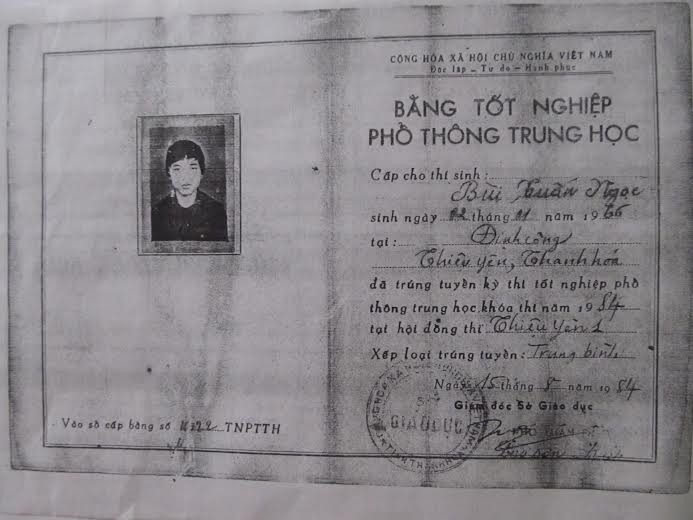 CỘNG HÒA XÃ HỘI CHỦ NGHĨA VIỆT NAM
Độc lập - Tự do - Hạnh phúc
BẰNG TỐT NGHIỆP
PHỔ THÔNG TRUNG HỌC
Cấp cho thí sinh:
Bùi Tuấn Ngọc
sinh ngày 02 tháng 01 năm 1966
tại: Định Công
Thiệu Yên, Thanh hóa
đã trúng tuyển kỳ thi tốt nghiệp phổ
thông trung học khóa thi năm 1984
tại hội đồng thi Thiệu Yên 1
Xếp loại trúng tuyển: Trung bình
Ngày 15 tháng 8 năm 1984
Giám đốc Sở Giáo dục
GIÁO DỤC
Vào sổ cấp bằng số TNPTTH